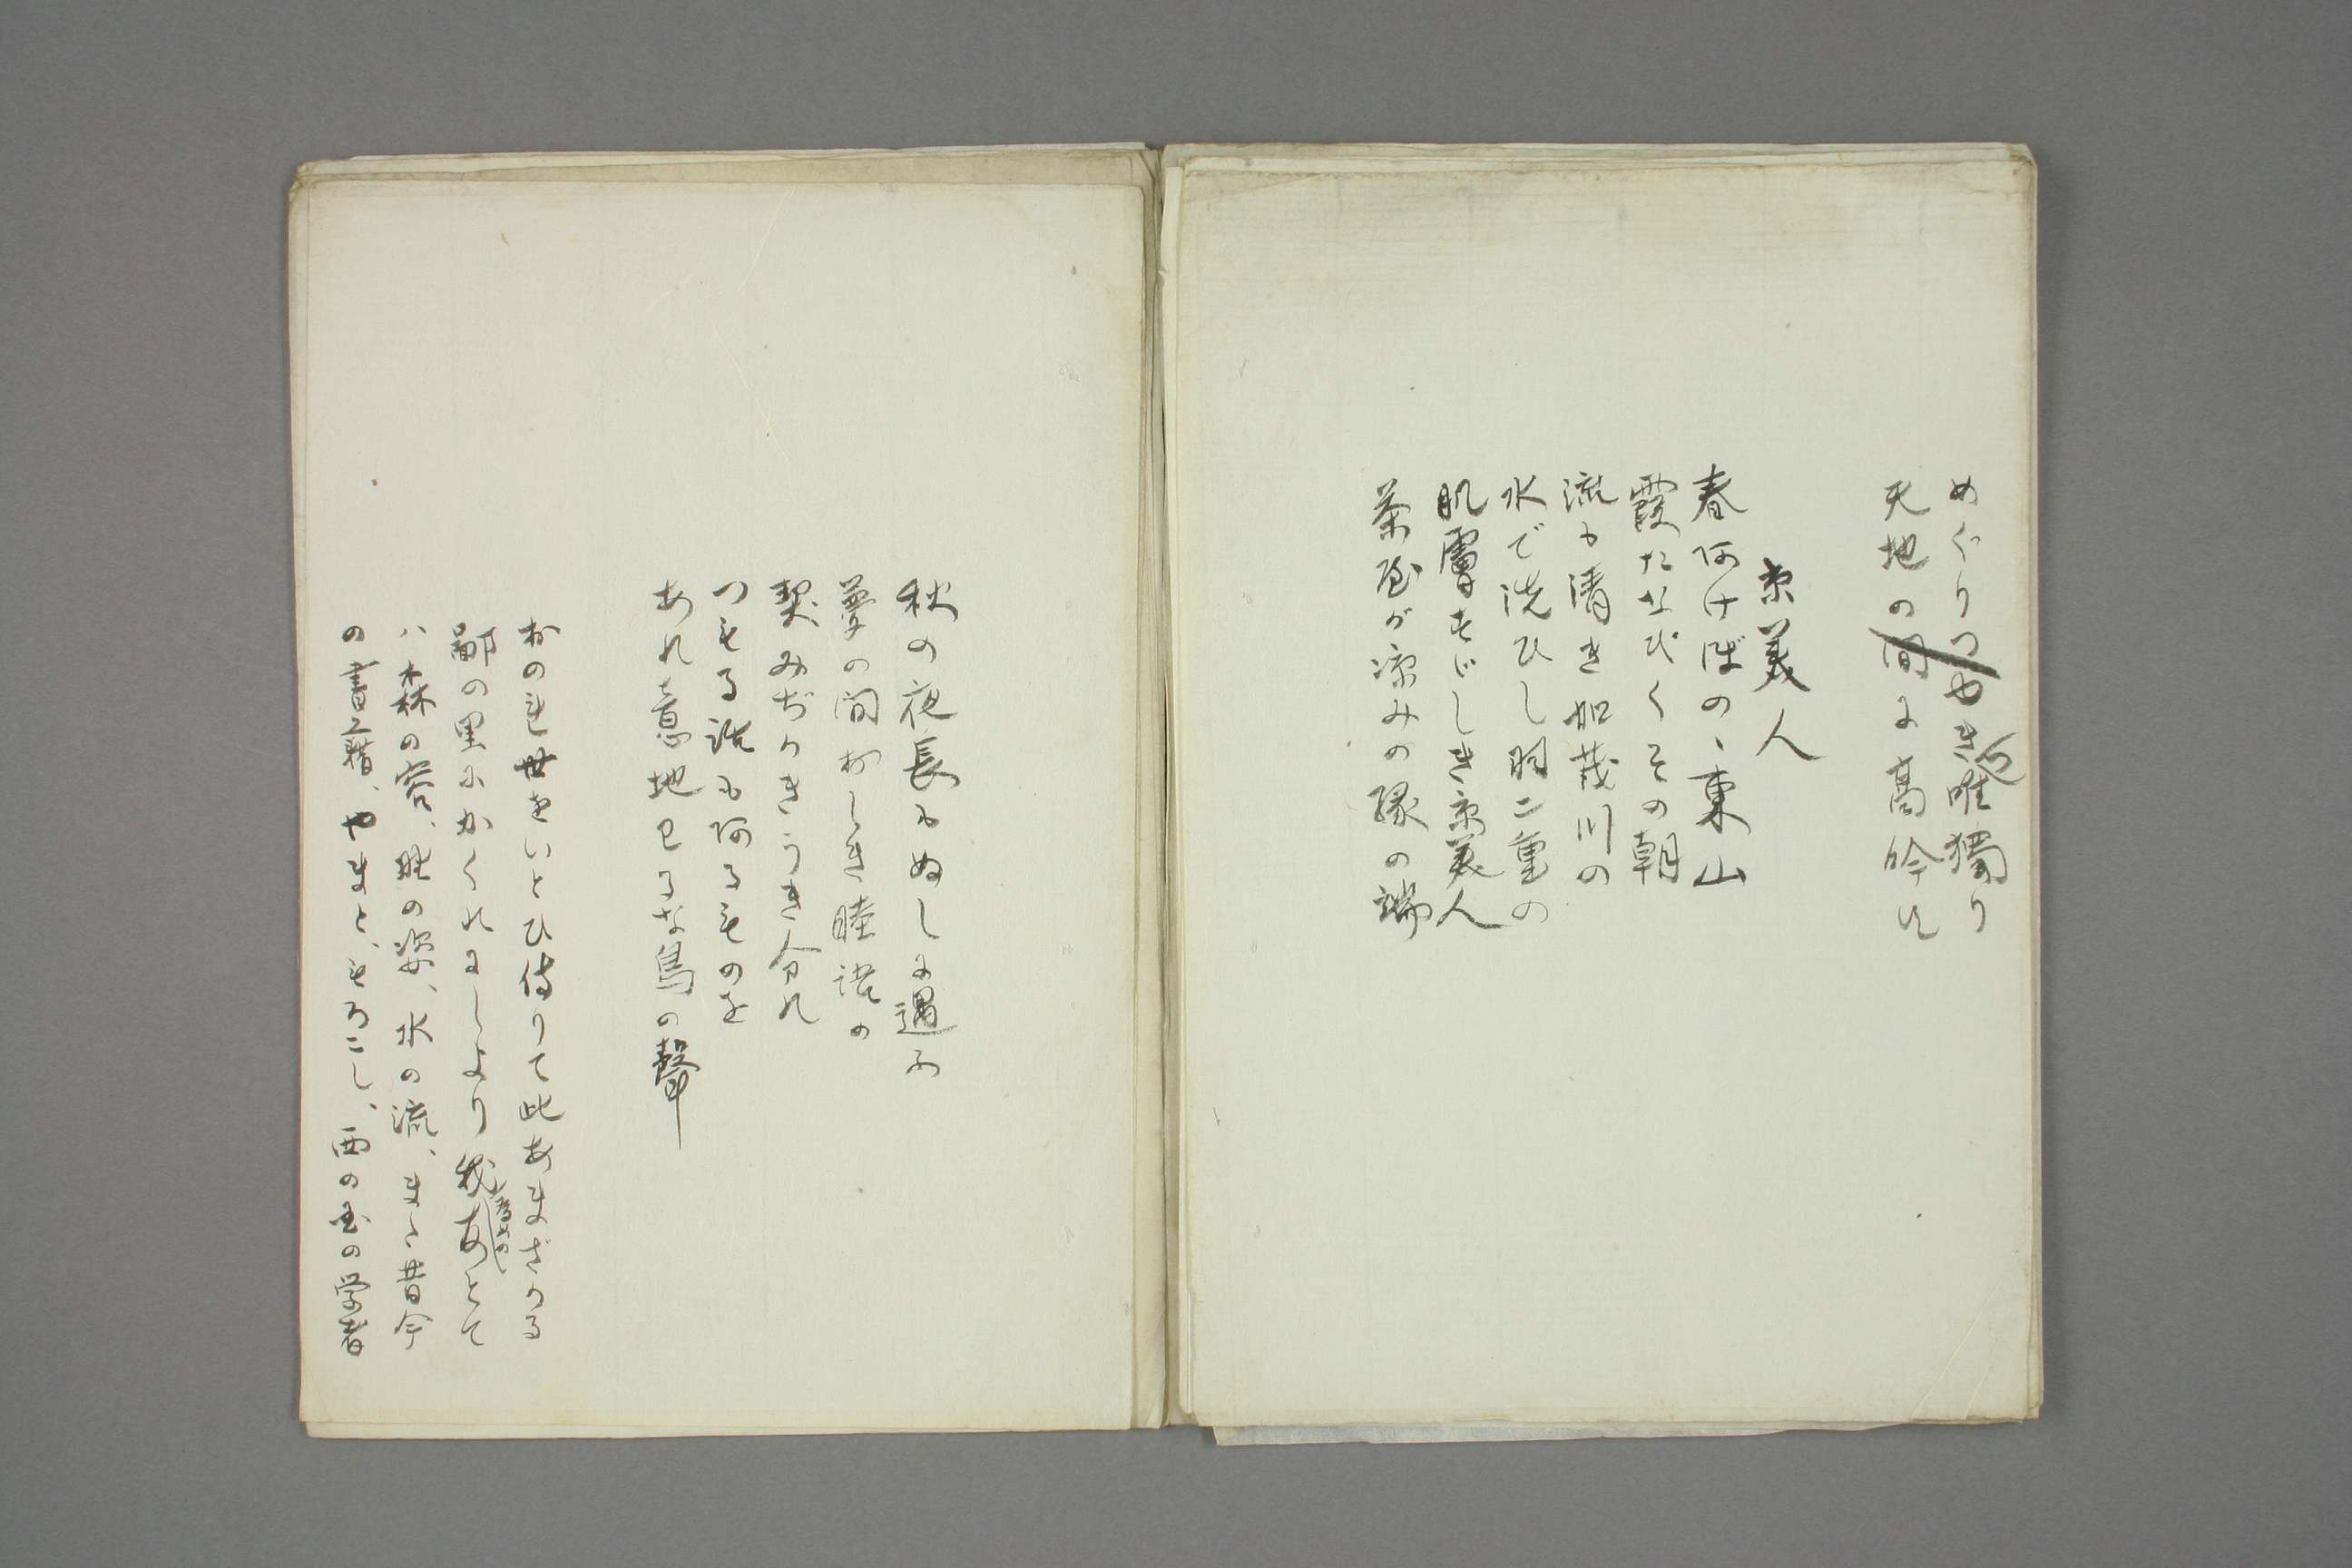 めぐりつゝ唯獨り
天地の間に高吟す
京美人
春のあけぼの、東山
霞たなびくその朝
流も清き加茂川の
水で洗ひし羽二重の
肌膚すゞしき京美人
茶屋が凉みの縁の端
秋の夜長もぬしに遇ふ
夢の間おしき睦語の
契みぢかきうき分れ
つもる話も阿るものを
あれ意地ワるな鳥の聲
おのれ世をいとひ侍りて此あまざかる
鄙の里にかくれにしより我友とて
ハ森の容、野の姿、水の流、また昔今
の書籍、やまと、もろこし、西の国の学者